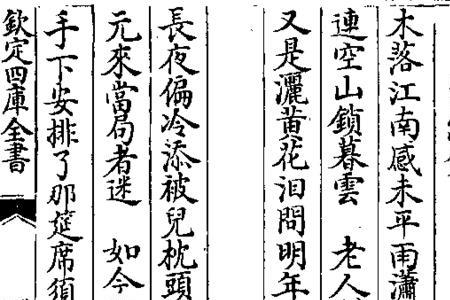 木落江南感未平雨瀟
連空山鎖暮雲　老人
又是灑黄花泪問明年
長夜偏冷添被兒枕頭
元來當局者迷　如今
手下安排了那筵席須
欽定四庫全書